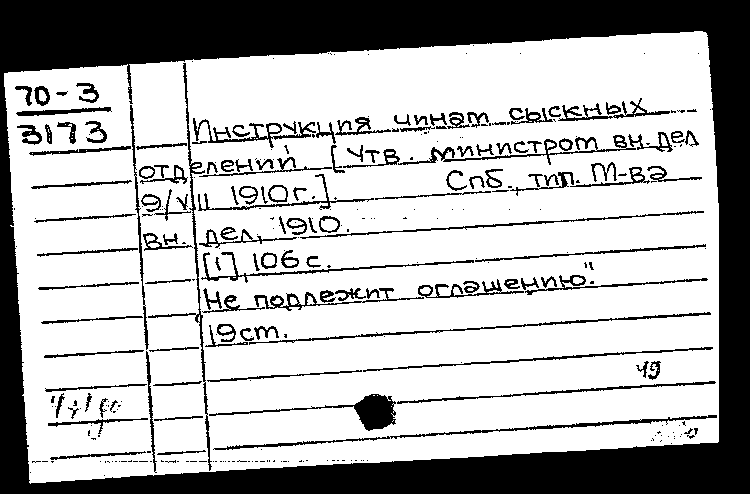 70-3
3173
Инструкция чинам сыскных
отделений. [Утв. министром вн. дел
9/VIII 1910г.]. Спб., тип. М-ва
вн. дел, 1910.
[1], 106 с.
"Не подлежит оглашению".
19 см.
49